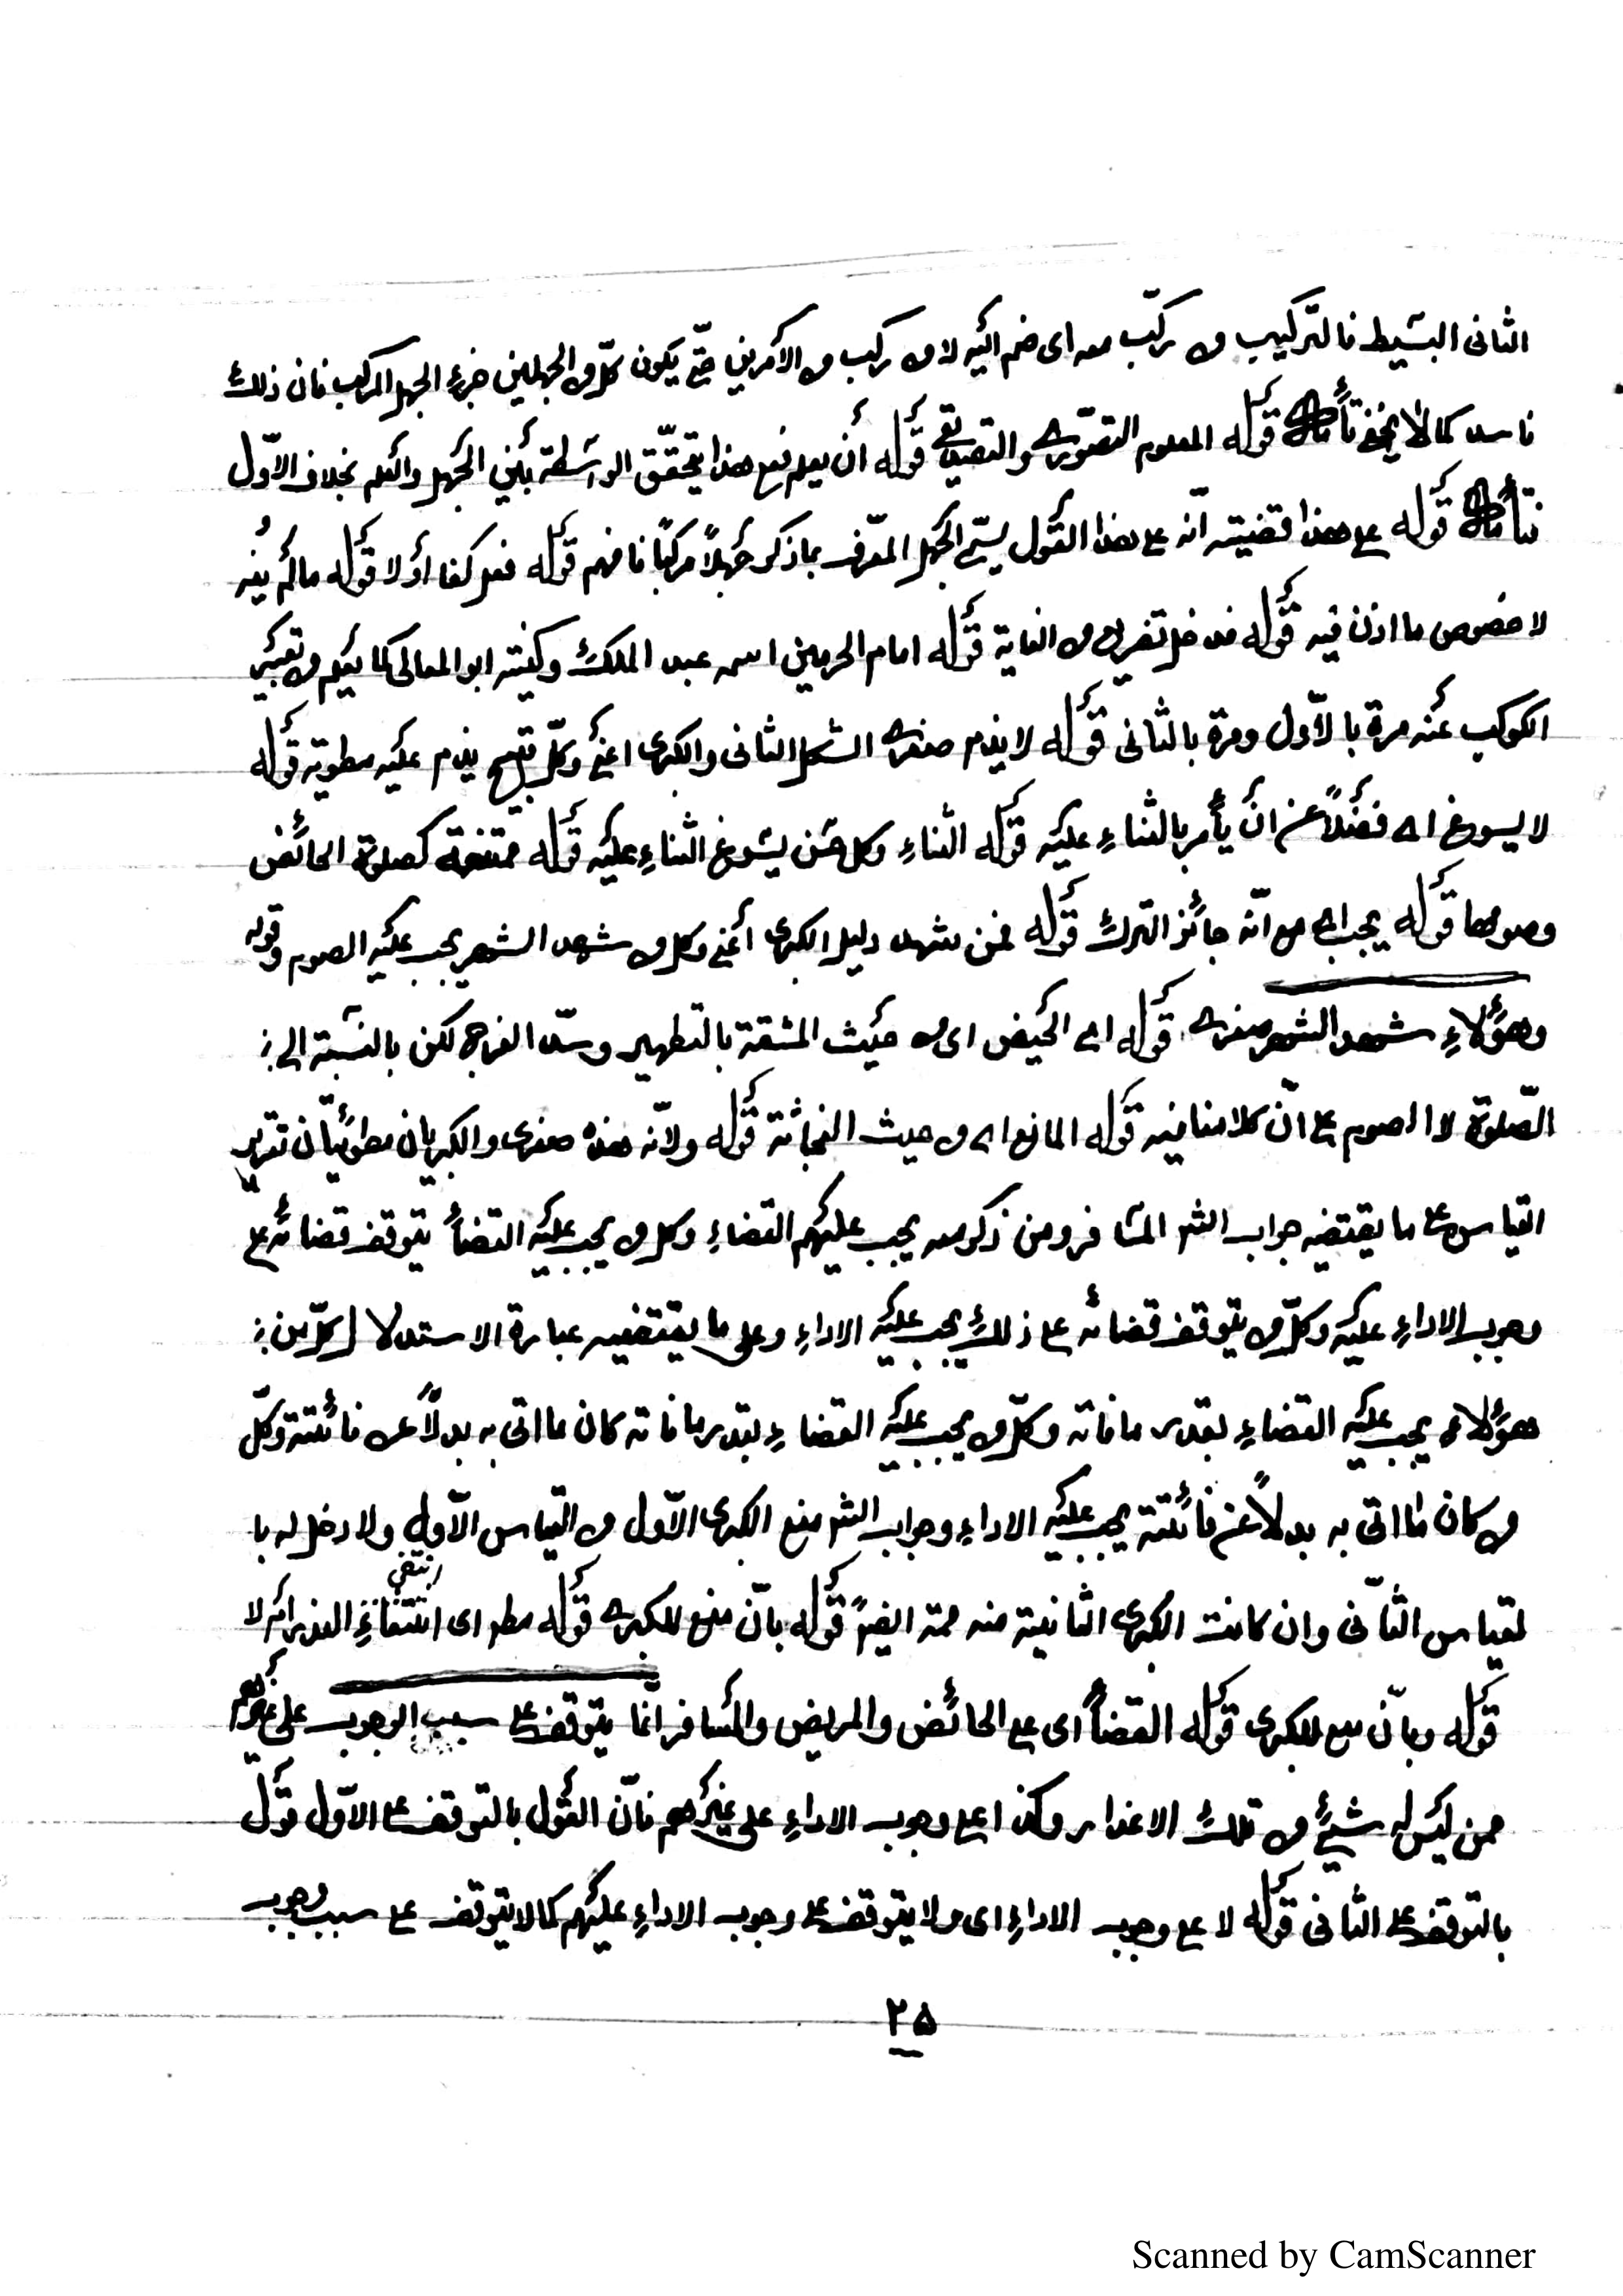 الثانى البسيط فالتركيب من ركّب معه اى ضم اليه لا من ركب من الامرين حتّى يكون كلّ من الجهلين جزء الجهل المركب فان ذلك
فاسد كما لا يخفى تأمل قوله المعلوم التصوّرى والتصديقى قوله أن يعلم فعلى هذا يتحقّق الواسطة بين الجهل والعلم بخلاف الاوّل
فتأمل قوله على هذا قضيته انّه على هذا القول يسمّى الجهل المعرّف بما ذكر جهلاً مركبًا فافهم قوله فعل كفا أولا قوله مالم يُنه
لا خصوص ما اذن فيه قوله فدخل تفريع من الغاية قوله امام الحرمين اسمه عبد الملك وكنيته ابو المعالى كما يعلم من تعبير
الكوكب عنه مرة بالاّول ومرة بالثانى قوله لا يذم صغرى الشكل الثانى والكبرى اعنى وكلّ قبيح يذم عليه مطوية قوله
لا يسوغ اى فضلاً عن ان يأمر بالثناء عليه قوله الثناء وكل حسن يسوغ الثناء عليه قوله ممتنعة كصلوة الحائض
وصومها قوله يجب اى مع انّه جائز الترك قوله فمن شهد دليل الكبرى أعنى وكل من شهد الشهر يجب عليه الصوم وقوله
وهؤلاء شهد الشهر صغرى قوله اى الحيض اى من حيث المشقة بالتطهير وسدّ الفرج لكن بالنسبة الى :
الصّلوة لا الصوم على انّ كلامنا فيه قوله المانع اى من حيث النجاثة قوله ولانّه هذه صغرى والكبريان مطويّتان تقرير
القياس على ما يقتضيه جواب الشر المسافر ومن ذكر معه يجب عليهم القضاء وكل من يجب عليه القضأ يتوقف قضائه على
وجوب الاداء عليه وكلّ من يتوقف قضائه على ذلك يجب عليه الاداء وعلى ما يقتضيه عبارة الاستدلال كلّ من :
هؤلاء يجب عليه القضاء بقدر ما فاته وكلّ من يجب عليه القضاء بقدر ما فاته كان ما اتى به بدلاً عن فائتته وكلّ
من كان ما اتى به بدلاً عن فائتته يجب عليه الاداء وجواب الشر منع الكبرى الاّول من القياس الاّول ولا دخل له با
لقياس الثاّنى وان كانت الكبرى الثانية منه ممة ايضًا قوله بانّ منع للكبرى قوله مط اى انتفاء العذر ام لا
قوله وبانّ منع للكبرى قوله القضأ اى على الحائض والمريض والمسافر انّما يتوقف على سبب الوجوب على غيرهم
ممن ليس له شئ من تلك الاعذار وكذا على وجوب الاداء على غيرهم فانّ القول بالتوقف على الاوّل قول
بالتوقف على الثانى قوله لا على وجوب الاداء اى ولا يتوقف على وجوب الاداء عليهم كما لا يتوقف على سبب وجوب
٢٥
Scanned by CamScanner